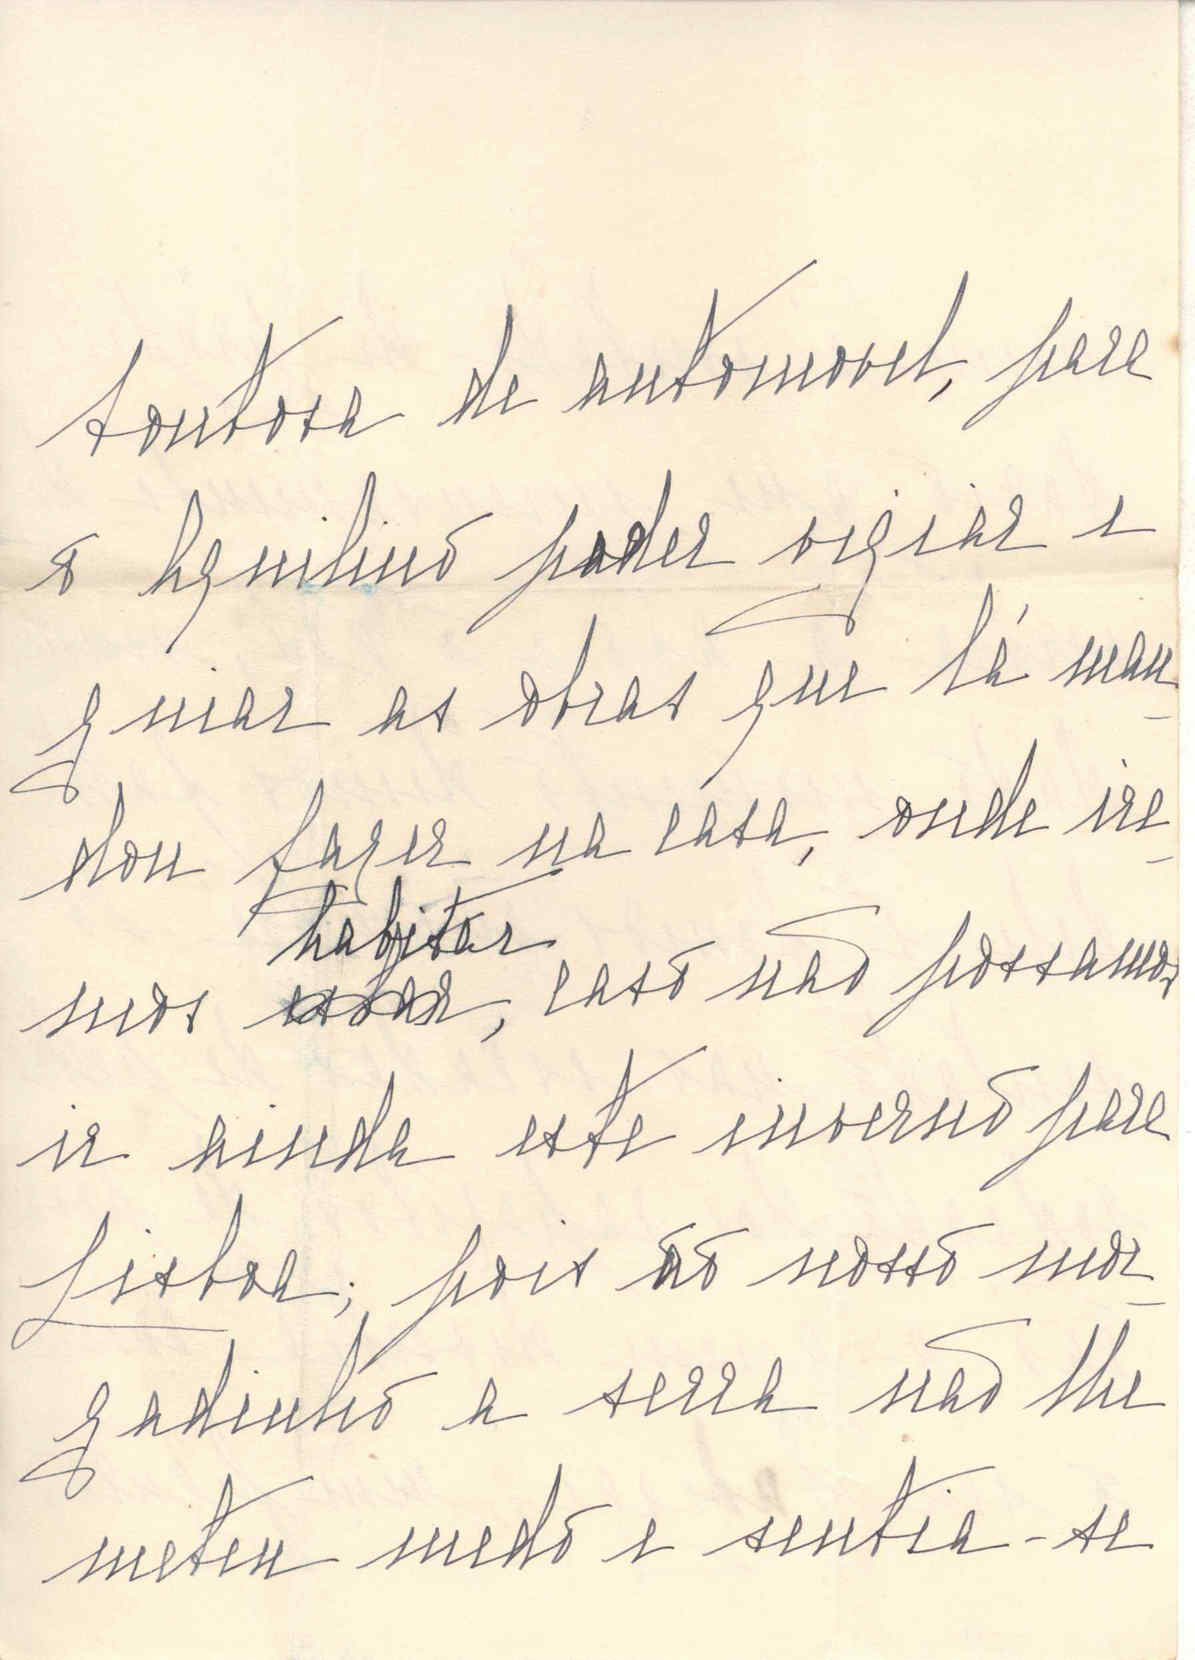 de automovel, para
o Aquilino poder vigiar e
guiar as obras que lá man-
dou fazer na casa, onde ire-
habitar
mos estar, caso não possamos
ir ainda este inverno para
Lisboa; pois ao nosso mor-
gadinho a serra não lhe
meteu medo e sentia-se